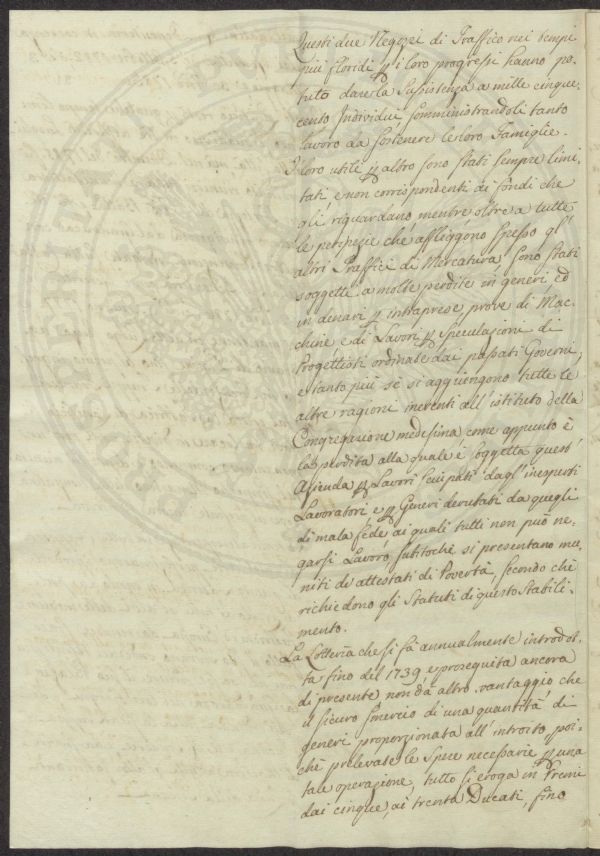 Questi due Negozzi di Traffico nei tempi
più floridi p i loro progressi hanno po-
tuto dare la Sussistenza a mille cinque-
cento Individui somministrandoli tanto
lavoro da sostenere le loro Famiglie.
I loro utili p altro sono stati sempre limi-
tati e non corrispondenti ai fondi che
gli riguardano mentre oltre a tutte
le peripezie che affliggono spesso gl'
altri Traffici di Mercatura sono stati
soggetti a molte perdite in generi ed
in denari p intraprese prove di Mac-
chine e di Lavori p speculazioni di
Progettisti ordinate dai passati Governi,
e tanto più se si aggiungono tutte le
altre ragioni inerenti all'istituto della
Congregazione medesima come appunto è
la perdita alla quale è soggetta quest'
Azienda p Lavori sciupati dagl'inesperti
Lavoratori e p Generi derubati da quegli
di mala fede ai quali tutti non può ne-
garsi Lavoro subitochè si presentano mu-
niti di attestati di Povertà, secondo che
richiedono gli Statuti di questo Stabili-
mento.
La Lotteria che si fà annualmente introdot-
ta fino del 1739 e proseguita ancora
di presente non dà altro vantaggio che
il sicuro smercio di una quantità di
generi proporzionata all'introito, poi-
chè prelevate le spese necessarie p una
tale operazione, tutto si eroga in Premi
dai cinque, ai trenta Ducati, fino